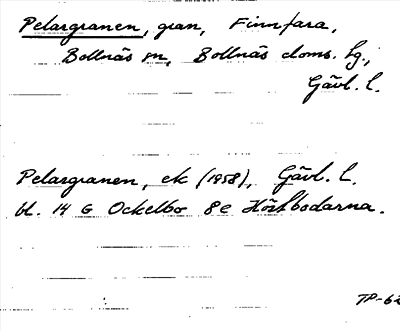 Pelargranen, gran, Finnfara,
Bollnäs sn, Bollnäs doms. hg.,
Gävl. l.
Pelargranen, ek (1958), Gävl. l.
bl. 14 G Ockelbo 8e Höstbodarna.
TP-62